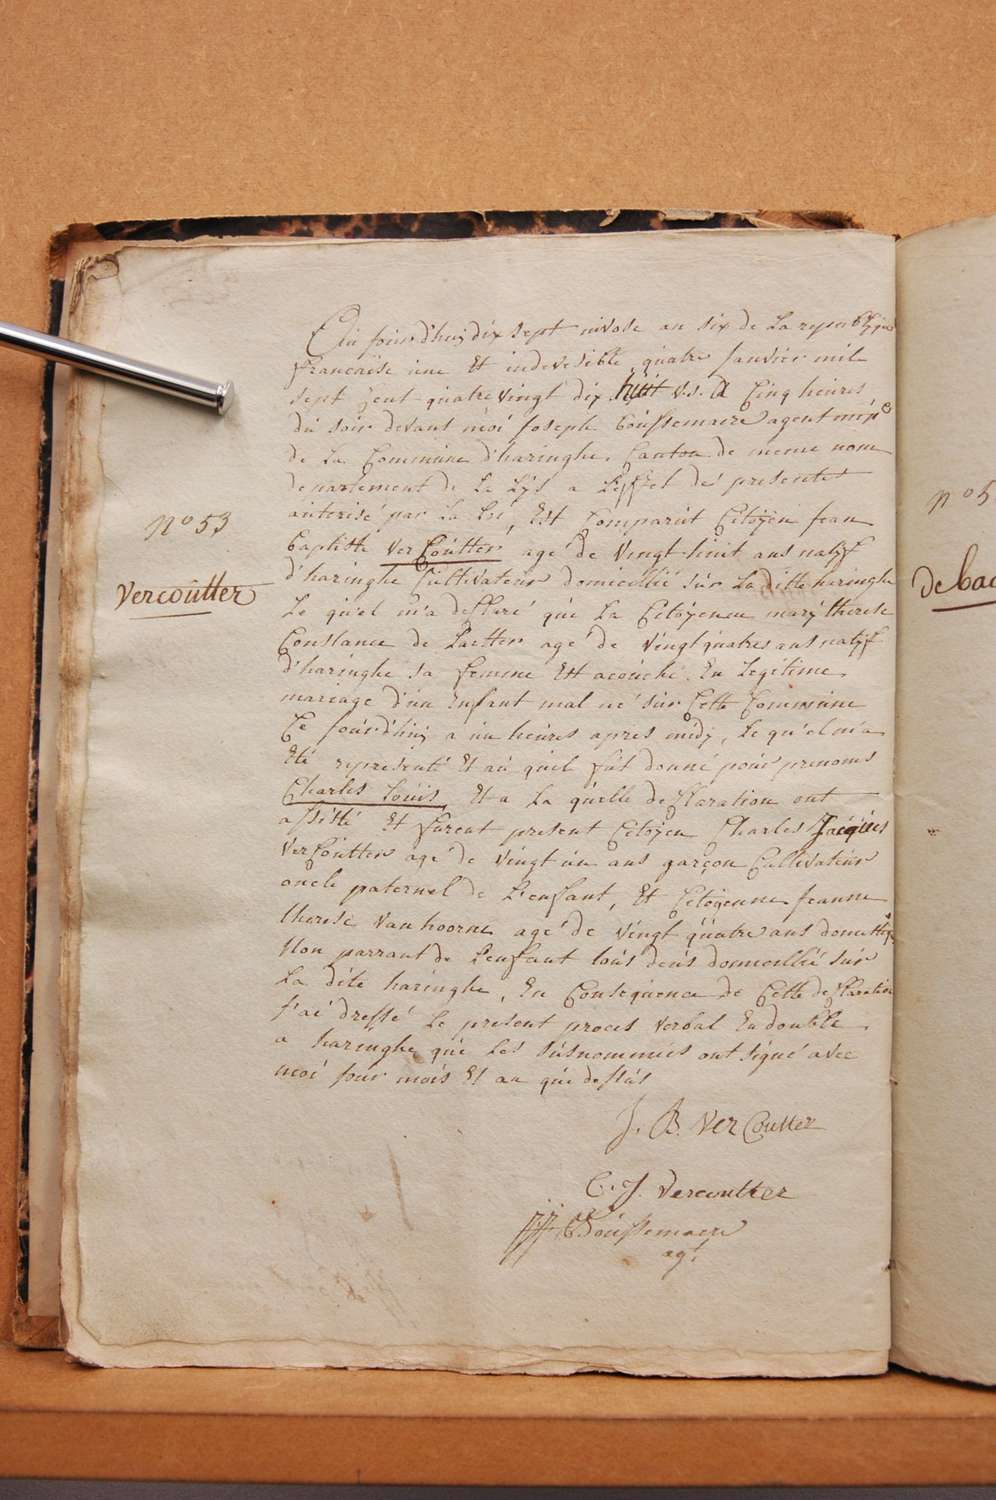 Cui jourd'huy dix sept nivose an six de La republique
francaise une Et indevesible quatre janvier mil
sept Cent quatre vingt dix huit v.s. a Cinq heures
du soir devant moi joseph Coussemacre agent mpe
de La Commune d'haringhe, Canton de meme nom
departement de La Lys a L'effet de presente
autorisé par La Loi, Est Comparut Citoÿen jean
baptiste Ver Coutter agé de vingt huit ans natif
d'haringhe Cultivateur domicillié sur La ditte haringhe
Le quel m'a desclaré que La Citoÿenne marÿ therese
Constance de Laetter agé de vingt quatres ans natif
d'haringhe sa femme Est acouché En Legitime
mariage d'un Enfant mal né sur Cette Commune
Ce jourd'huy a un heures apres midy, Le quel m'a
Eté representé Et au quel fut donné pour prenoms
Charles Louis, Et a La quelle desclaration ont
assisté Et furent present Citoÿen Charles Jacques
VerCoutter agé de vingt un ans garçon Cultivateur
oncle paternel de L'enfant, Et Citoÿenne jeanne
therese Vanhoorne agé de vingt quatre ans domestique
Non parrant de L'enfant tous deus domicillié sur
La dite haringhe, En Consequence de Cette desclaration
j'ai dressé Le present proces verbal En double
a haringhe que Les susnommés ont signé avec
moi jour mois Et an que dessus
N° 53
Vercoutter
J. B. VerCoutter
C. J. Vercoutter
Coussemacre
agt
n° 5
de bac